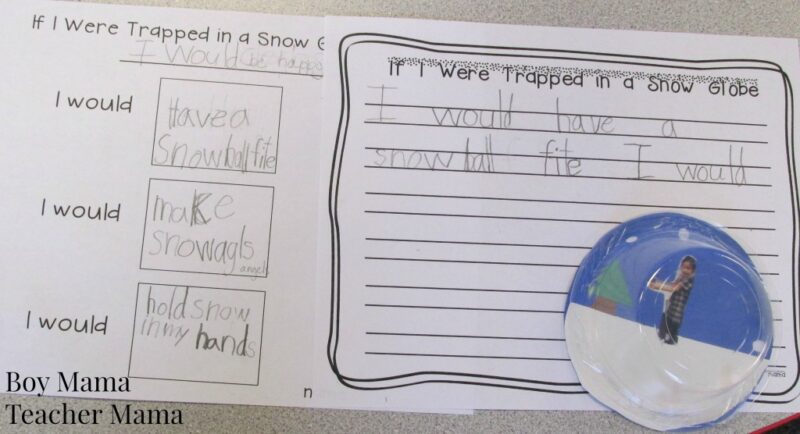 If I Were Trapped in a Snow G
I would be happy
I would
Have a
Snowball fite
I would
make
snowagls
angels
I would
hold snow
in my hands
n
If I Were Trapped in a Snow Globe
I would have a
snowball fite I would
Mama
Boy Mama
Teacher Mama